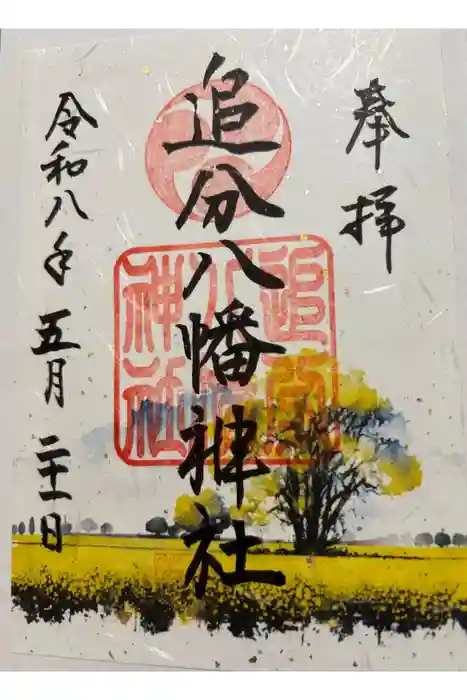 奉拝
追分八幡神社
令和八年 五月 二十一日
追
神社